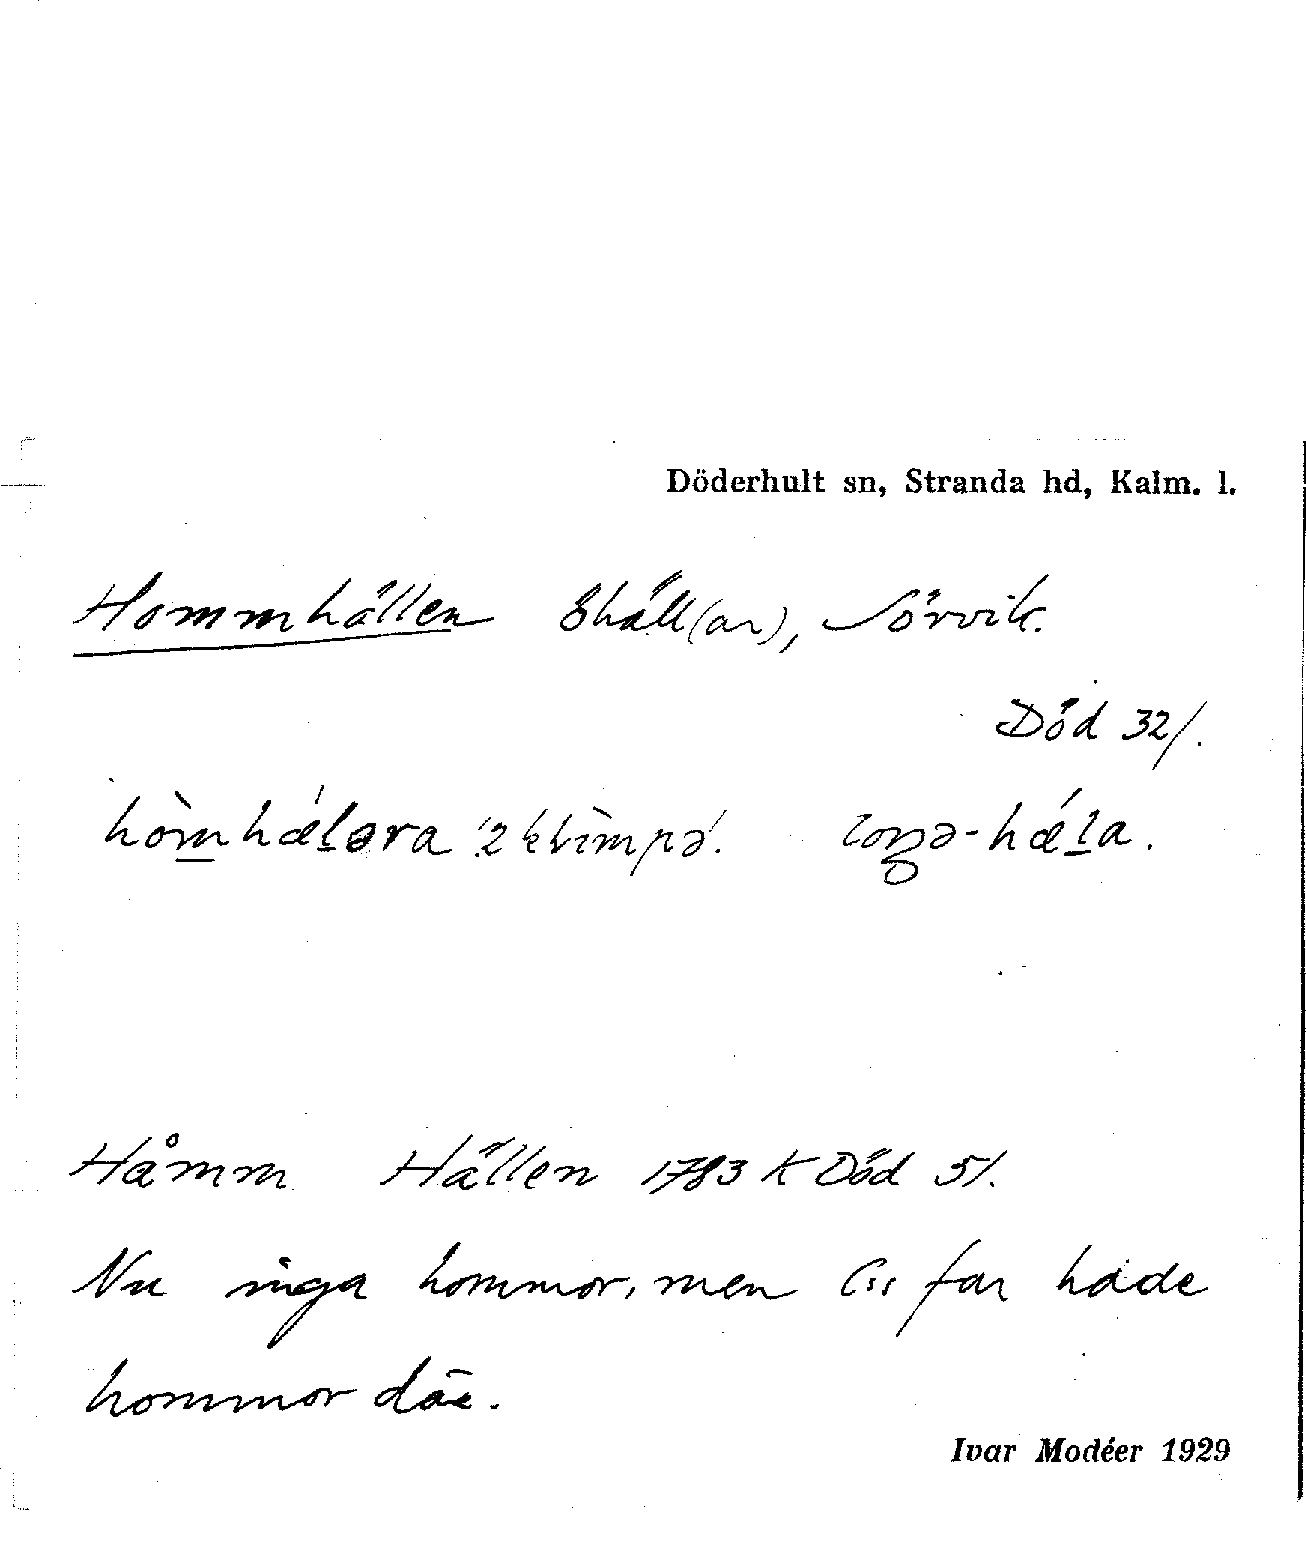 Döderhult sn, Stranda hd, Kalm. l.
Hommhällen 8häll(ar), Sörvik.
Död 32/.
hòm̲hǽl̲əra '2 klìmpə'. -hǽl̲a.
Håmm Hällen 1783 K Död 51.
Nu inga hommor, men far hade
hommor där.
Ivar Modéer 1929